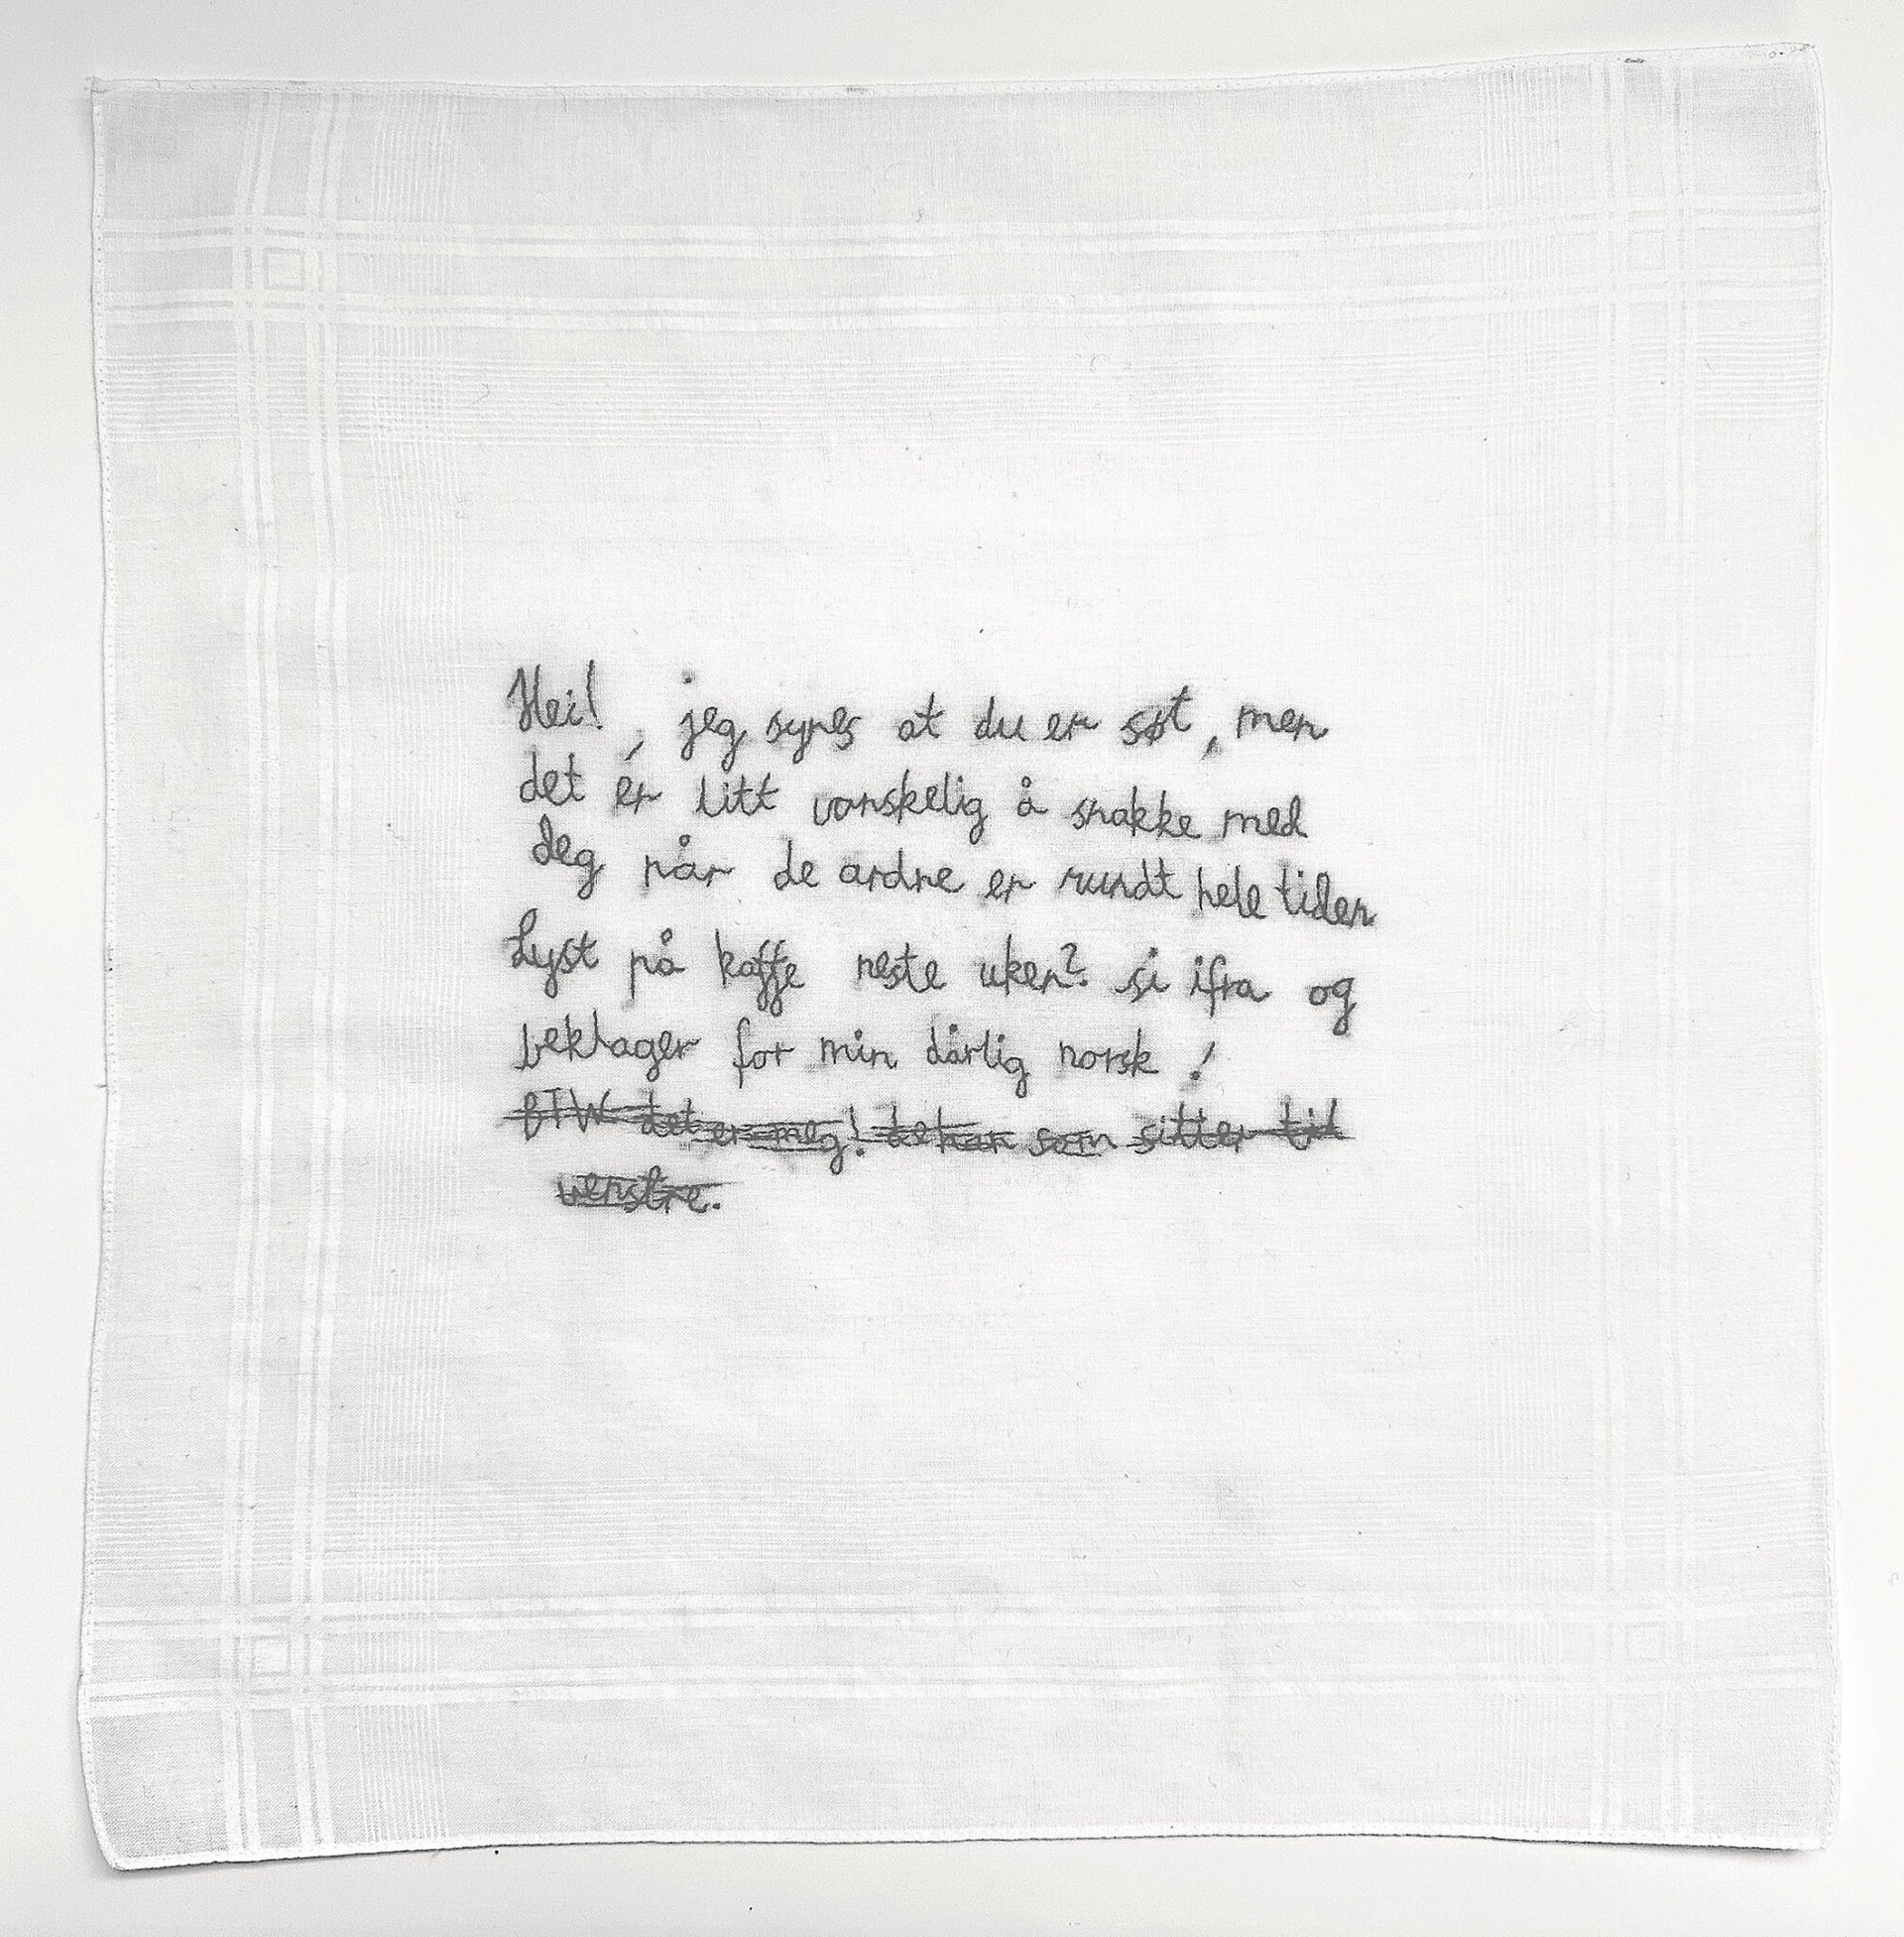 Hei! , jeg synes at du er søt, men
det er litt vanskelig å snakke med
deg når de andre er rundt hele tiden
Lyst på kaffe neste uken? si ifra og
beklager for min dårlig norsk!
BTW det er meg! de han som sitter til
venstre.